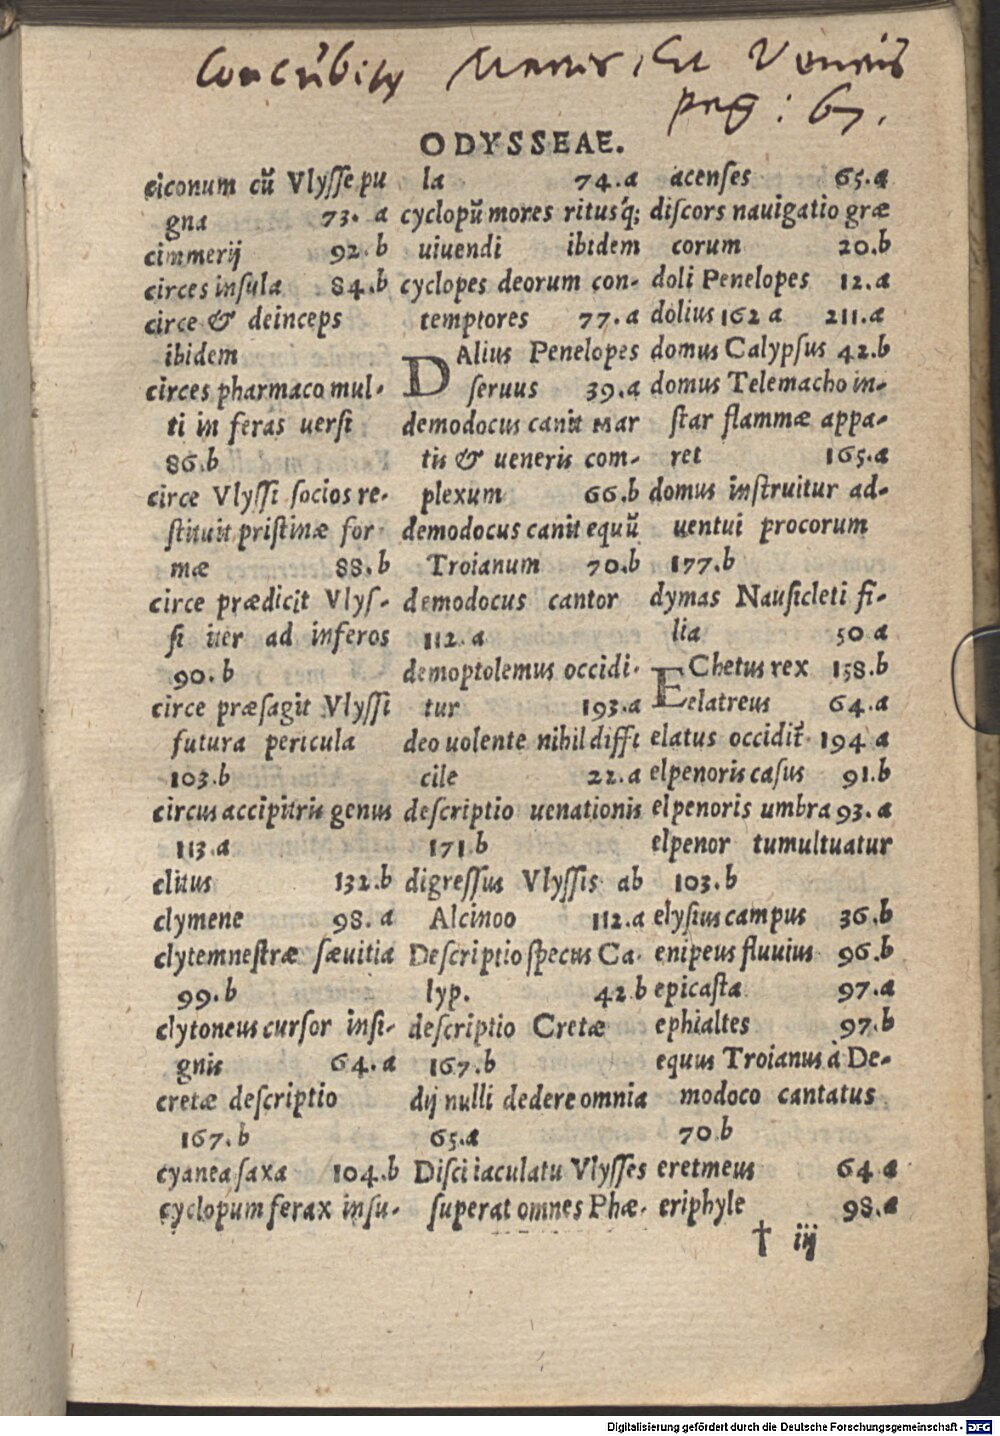 Concubitus Martis, Et Veneris
pag: 67.
ODYSSEAE.
ciconum cū Vlyſſe pu
gna 73. a
cimmerij 92. b
circes inſula 84. b
circe & deinceps
ibidem
circes pharmaco mul-
ti in feras uerſi
86. b
circe Vlyſſi ſocios re-
ſtituit priſtinæ for
mæ 88. b
circe prædicit Vlyſ-
ſi iter ad inferos
90. b
circe præſagit Vlyſſi
futura pericula
103. b
circus accipitris genus
113. a
clitus 132. b
clymene 98. a
clytemneſtræ ſæuitia
99. b
clytoneus curſor inſi-
gnis 64. a
cretæ deſcriptio
167. b
cyanea ſaxa 104. b
cyclopum ferax inſu-
la 74. a
cyclopū mores ritusq́;
uiuendi ibidem
cyclopes deorum con-
temptores 77. a
DAlius Penelopes
ſeruus 39. a
demodocus canit Mar
tis & ueneris com-
plexum 66. b
demodocus canit equū
Troianum 70. b
demodocus cantor
112. a
demoptolemus occidi-
tur 193. a
deo uolente nihil diffi
cile 22. a
deſcriptio uenationis
171. b
digreſſus Vlyſſis ab
Alcinoo 112. a
Deſcriptio ſpecus Ca-
lyp. 42. b
deſcriptio Cretæ
167. b
dij nulli dedere omnia
65. a
Diſci iaculatu Vlyſſes
ſuperat omnes Phæ-
acenſes 65. a
diſcors nauigatio græ
corum 20. b
doli Penelopes 12. a
dolius 162 a 211. a
domus Calypſus 42. b
domus Telemacho in-
ſtar flammæ appa-
ret 165. a
domus inſtruitur ad-
uentui procorum
177. b
dymas Nauſicleti fi-
lia 50 a
EChetus rex 158. b
elatreus 64. a
elatus occidit̃ 194 a
elpenoris caſus 91. b
elpenoris umbra 93. a
elpenor tumultuatur
103. b
elyſius campus 36. b
enipeus fluuius 96. b
epicaſta 97. a
ephialtes 97. b
equus Troianus à De-
modoco cantatus
70 b
eretmeus 64 a
eriphyle 98. a
† iij
Digitalisierung gefördert durch die Deutsche Forschungsgemeinschaft - DFG